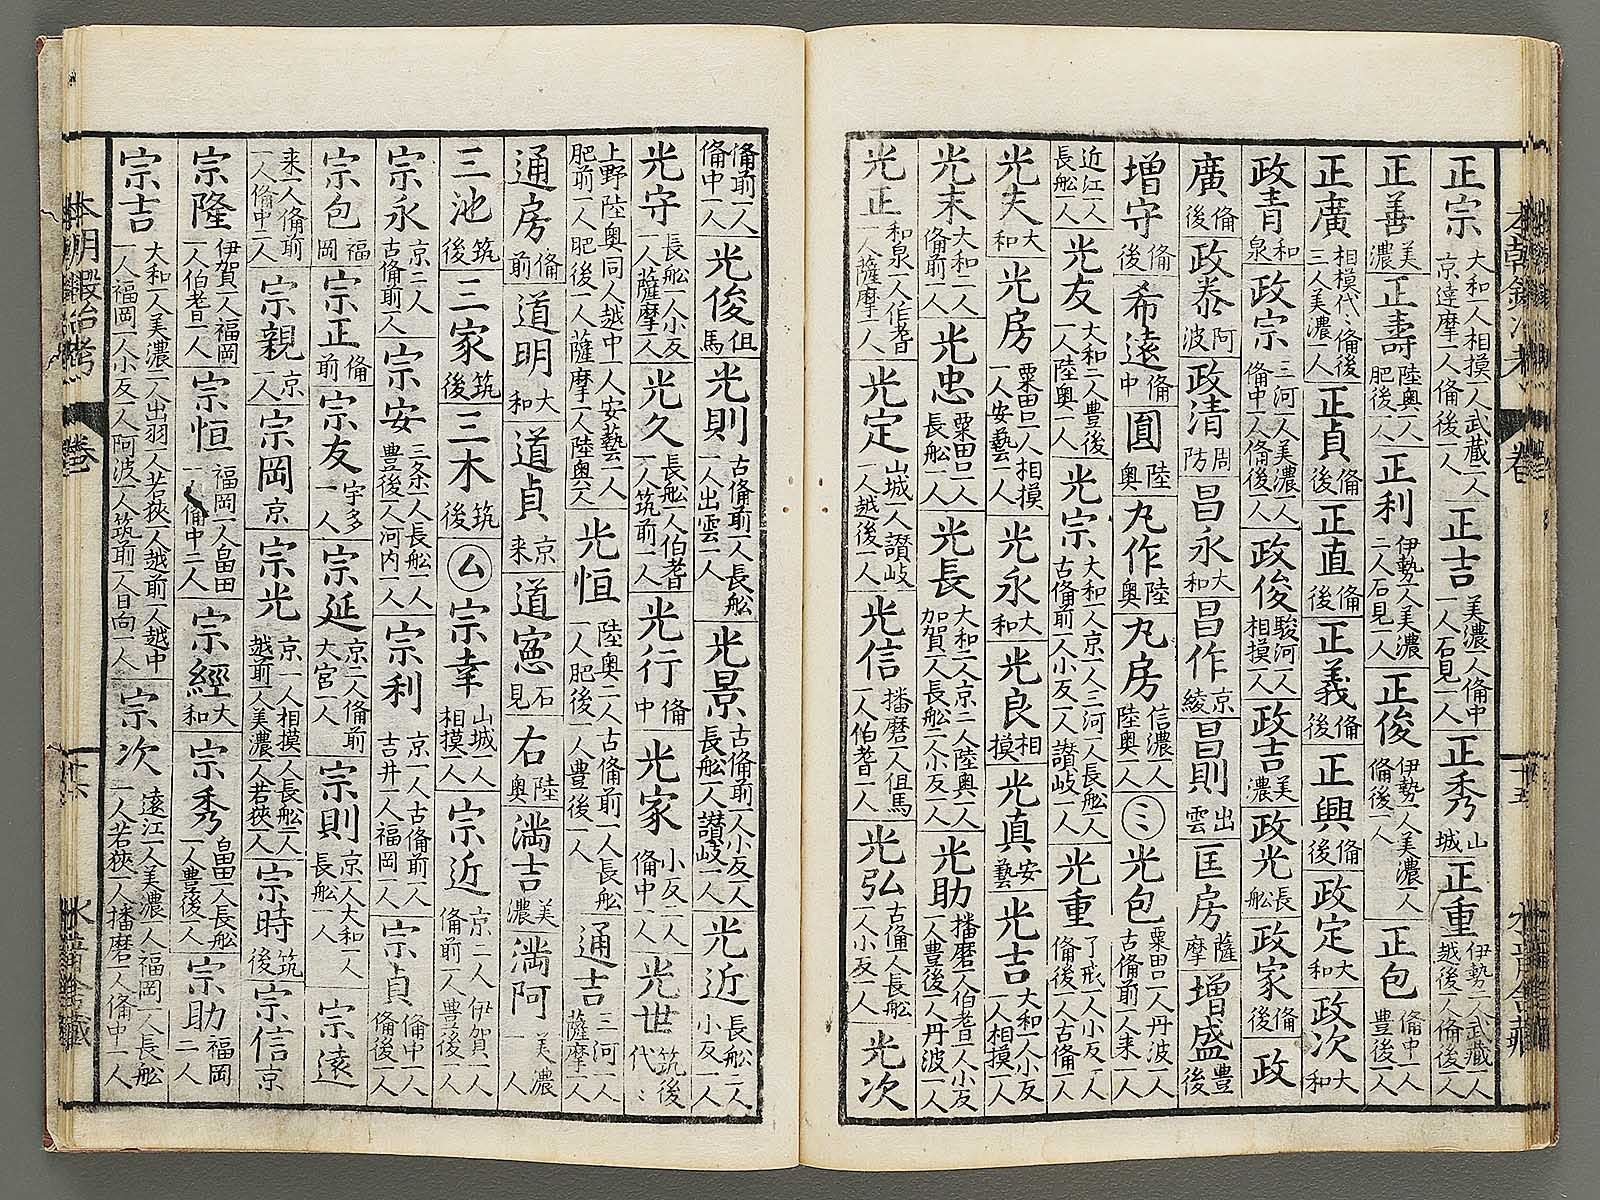 正宗 大和一人相摸一人武蔵二人京達摩一人俻後一人 正吉 美濃一人俻中一人石見一人 正秀 山城 正重 伊勢一人武蔵一人越後一人俻後一人
正善 美濃 正壽 陸奥一人肥後一人 正利 伊勢一人美濃二人石見一人 正俊 伊勢一人美濃一人俻後一人 正包 俻中一人豊後一人
正廣 相模代〻俻後三人美濃一人 正貞 俻後 正直 俻後 正義 俻後 正興 俻後 政定 大和 政次 大和
政青 和泉 政宗 三河一人美濃一人俻中一人俻後一人 政俊 駿河一人相摸一人 政吉 美濃 政光 長舩 政家 俻後 政
廣 俻後 政泰 阿波 政清 周防 昌永 大和 昌作 京綾 昌則 出雲 匡房 薩摩 増盛 豊後
増守 俻後 希遠 俻中 圓 陸奥 九作 陸奥 九房 信濃一人陸奥一人 ㋯ 光包 粟田口一人丹波一人古俻前一人来一人
近江一人長舩一人 光友 大和二人豊後一人陸奥一人 光宗 大和一人京一人三河一人長舩一人古俻前一人小反一人讃岐一人 光重 了戒一人小反一人俻後一人古俻一人
光夫 大和 光房 粟田口一人相摸一人安藝一人 光永 大和 光良 相摸 光真 安藝 光吉 大和一人小反一人相摸一人
光末 大和一人俻前一人 光忠 粟田口一人長舩一人 光長 大和二人京二人陸奥一人加賀一人長舩二人小反一人 光助 播磨一人伯耆一人小反一人豊後一人丹波一人
光正 和泉一人伯耆一人薩摩一人 光定 山城一人讃岐一人越後一人 光信 播磨一人但馬一人伯耆一人 光弘 古俻一人長舩一人小反一人 光次
俻前一人俻中一人 光俊 但馬 光則 古俻前一人長舩一人出雲一人 光景 古俻前一人小反一人長舩一人讃岐一人 光近 長舩一人小反一人
光守 長舩一人小反一人薩摩一人 光久 長舩一人伯耆一人筑前一人 光行 俻中 光家 小反一人俻中一人 光世 筑後代〻
上野陸奥同一人越中一人安藝一人肥前一人肥後一人薩摩一人陸奥一人 光恒 陸奥二人古俻前一人長舩一人肥後一人豊後一人 通吉 三河一人薩摩一人
通房 俻前 道明 大和 道貞 京来 道寛 石見 右 陸奥 満吉 美濃 満阿 美濃一人
三池 筑後 三家 筑後 三木 筑後 ㋰ 宗幸 山城一人相摸一人 宗近 京二人伊賀一人俻前一人豊後一人
宗永 京二人古俻前一人 宗安 三条一人長舩一人豊後一人河内一人 宗利 京一人古俻前一人吉井一人福岡一人 宗貞 俻中一人俻後一人
宗包 福岡 宗正 俻前 宗友 宇多一人 宗延 京二人俻前大宮一人 宗則 京一人大和一人長舩一人 宗遠
来一人俻前一人俻中二人 宗親 京一人 宗岡 京 宗光 京一人相摸一人長舩二人越前一人美濃一人若狹一人 宗時 筑後 宗信 京
宗隆 伊賀一人福岡一人伯耆一人 宗恒 福岡一人畠田一人俻中二人 宗經 大和 宗秀 畠田一人長舩一人豊後一人 宗助 福岡二人
宗吉 大和一人美濃二人出羽一人若狹一人越前一人越中一人福岡一人小反一人阿波一人筑前一人日向一人 宗次 遠江一人美濃一人福岡一人長舩一人若狹一人播磨一人俻中一人
本朝鍛冶考